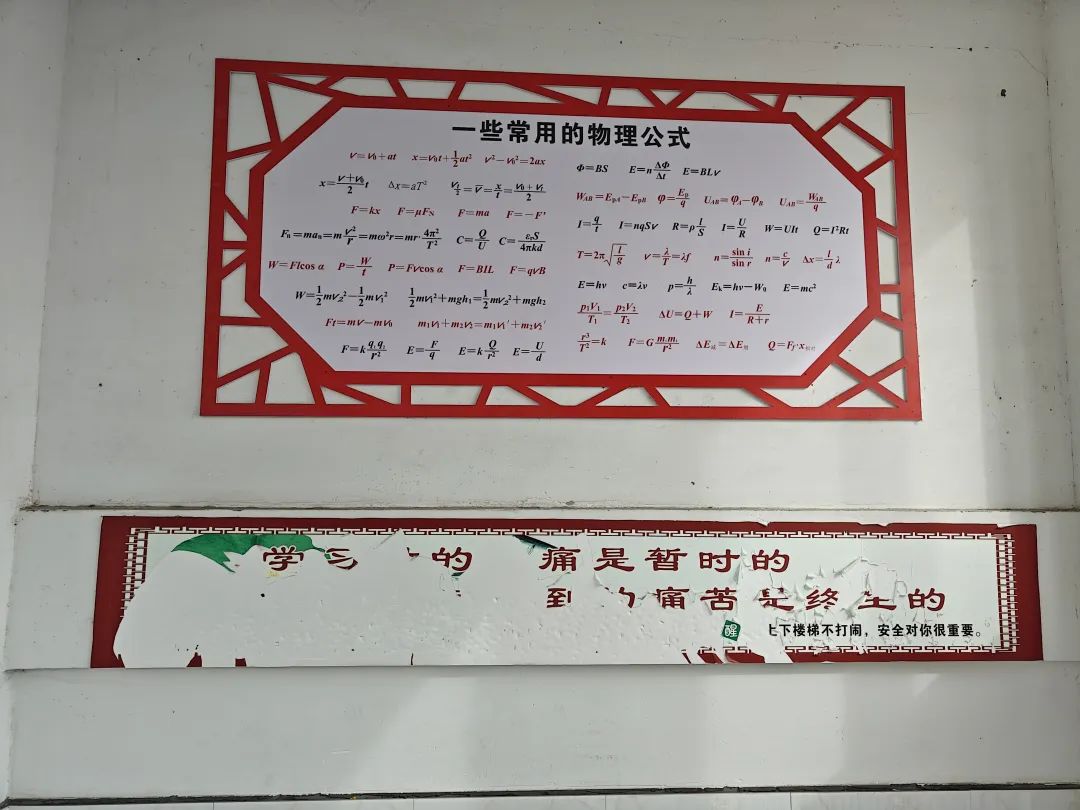 一些常用的物理公式
v=v₀+at x=v₀t+½at² v²-v₀²=2ax
x=(v+v₀)/2 t Δx=aT² v_(t/2)=v̄=x/t=(v₀+v_t)/2
F=kx F=μF_N F=ma F=-F'
Fₙ=maₙ=m v²/r=mω²r=mr·4π²/T² C=Q/U C=εᵣS/4πkd
W=Flcos α P=W/t P=Fvcos α F=BIL F=qvB
W=½mv₂²-½mv₁² ½mv₁²+mgh₁=½mv₂²+mgh₂
Ft=mv-mv₀ m₁v₁+m₂v₂=m₁v₁'+m₂v₂'
F=k q₁q₂/r² E=F/q E=k Q/r² E=U/d
Φ=BS E=n ΔΦ/Δt E=BLv
W_AB=E_pA-E_pB φ=E_p/q U_AB=φ_A-φ_B U_AB=W_AB/q
I=q/t I=nqSv R=ρ l/S I=U/R W=UIt Q=I²Rt
T=2π√(l/g) v=λ/T=λf n=sin i/sin r n=c/v Δx=l/d λ
E=hν c=λν p=h/λ E_k=hν-W₀ E=mc²
p₁V₁/T₁=p₂V₂/T₂ ΔU=Q+W I=E/(R+r)
r³/T²=k F=G m₁m₂/r² ΔE减=ΔE增 Q=F_f·x相对
学习 的 痛是暂时的
到 的痛苦是终生的
醒 上下楼梯不打闹，安全对你很重要。